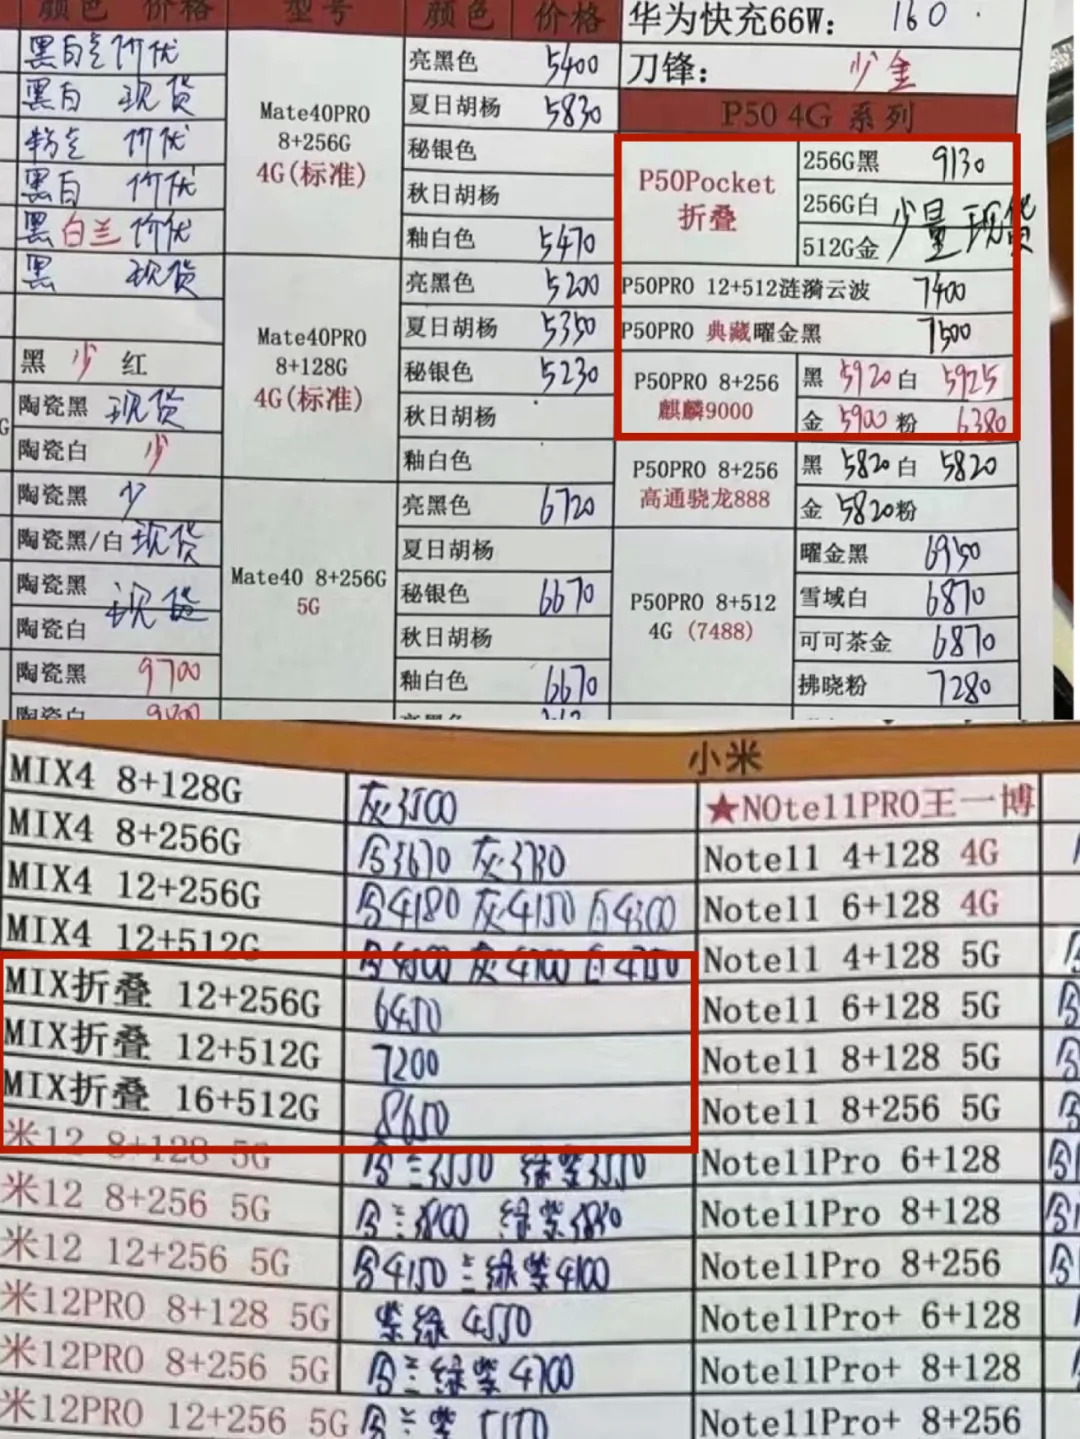 颜色 价格 型号 颜色 价格
黑白 价优
黑白 现货
价优
黑白 价优
黑 白兰 价优
黑 现货
黑 少 红
陶瓷黑 现货
陶瓷白 少
陶瓷黑 少
陶瓷黑/白 现货
陶瓷黑
现货
陶瓷白
陶瓷黑 9700
陶瓷白
Mate40PRO
8+256G
4G(标准)
亮黑色 5400
夏日胡杨 5830
秘银色
秋日胡杨
釉白色 5470
Mate40PRO
8+128G
4G(标准)
亮黑色 5200
夏日胡杨 5350
秘银色 5230
秋日胡杨
釉白色
Mate40 8+256G
5G
亮黑色 6720
夏日胡杨
秘银色 6670
秋日胡杨
釉白色 6670
亮黑色
华为快充66W: 160
刀锋: 少金
P50 4G 系列
P50Pocket
折叠
256G黑 9130
256G白 少量现货
512G金
P50PRO 12+512涟漪云波 7400
P50PRO 典藏曜金黑 7500
P50PRO 8+256
麒麟9000
黑 5920 白 5925
金 5900 粉 6380
P50PRO 8+256
高通骁龙888
黑 5820 白 5820
金 5820 粉
P50PRO 8+512
4G (7488)
曜金黑 6950
雪域白 6870
可可茶金 6870
拂晓粉 7280
小米
MIX4 8+128G 灰3500
MIX4 8+256G 3670 灰3730
MIX4 12+256G 4180 灰4150 白4300
MIX4 12+512G
MIX折叠 12+256G 6450
MIX折叠 12+512G 7200
MIX折叠 16+512G 8650
米12 8+128 5G 3550 绿紫3550
米12 8+256 5G 绿紫
米12 12+256 5G 4150 绿紫4100
米12PRO 8+128 5G 紫绿 4550
米12PRO 8+256 5G 绿紫4700
米12PRO 12+256 5G 紫
★NOte11PRO王一博
Note11 4+128 4G
Note11 6+128 4G
Note11 4+128 5G
Note11 6+128 5G
Note11 8+128 5G
Note11 8+256 5G
Note11Pro 6+128
Note11Pro 8+128
Note11Pro 8+256
Note11Pro+ 6+128
Note11Pro+ 8+128
Note11Pro+ 8+256